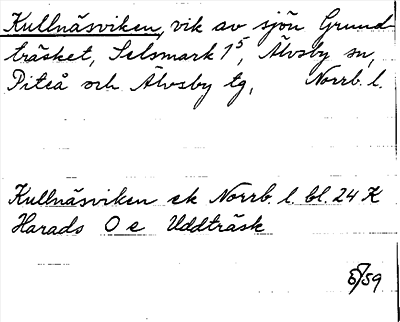 Kullnäsviken, vik av sjön Grund-
träsket, Selsmark 1⁵, Älvsby sn,
Piteå och Älvsby tg, Norrb. l.
Kullnäsviken ek Norrb. l. bl. 24 K
Harads O e Uddträsk
5/59